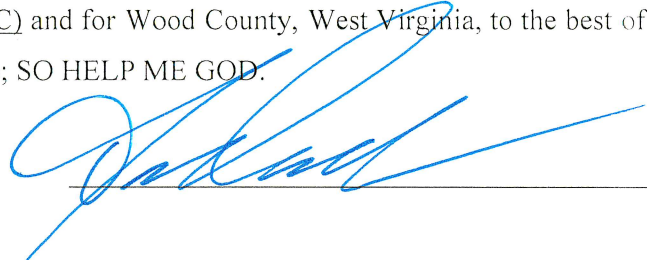 C) and for Wood County, West Virginia, to the best of
; SO HELP ME GOD.